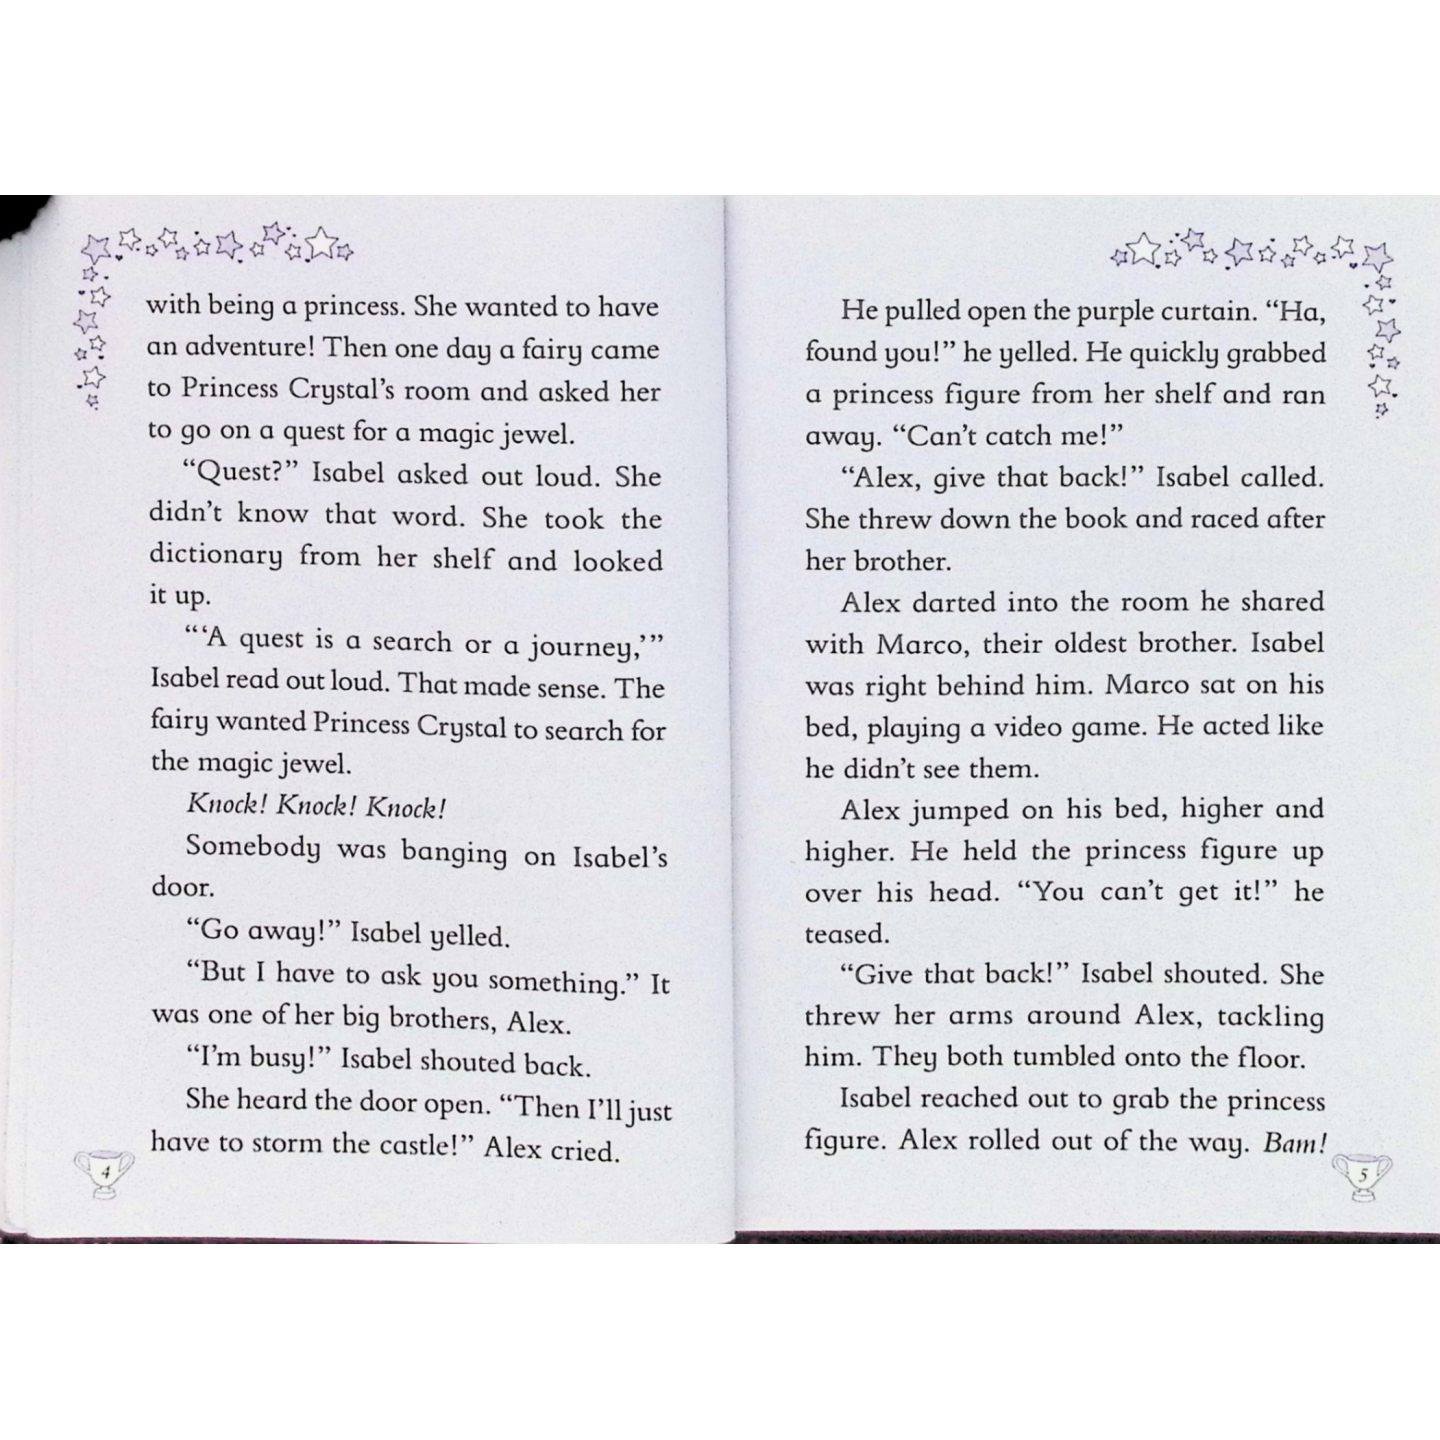 with being a princess. She wanted to have
an adventure! Then one day a fairy came
to Princess Crystal’s room and asked her
to go on a quest for a magic jewel.
“Quest?” Isabel asked out loud. She
didn’t know that word. She took the
dictionary from her shelf and looked
it up.
“‘A quest is a search or a journey,’”
Isabel read out loud. That made sense. The
fairy wanted Princess Crystal to search for
the magic jewel.
Knock! Knock! Knock!
Somebody was banging on Isabel’s
door.
“Go away!” Isabel yelled.
“But I have to ask you something.” It
was one of her big brothers, Alex.
“I’m busy!” Isabel shouted back.
She heard the door open. “Then I’ll just
have to storm the castle!” Alex cried.
4
He pulled open the purple curtain. “Ha,
found you!” he yelled. He quickly grabbed
a princess figure from her shelf and ran
away. “Can’t catch me!”
“Alex, give that back!” Isabel called.
She threw down the book and raced after
her brother.
Alex darted into the room he shared
with Marco, their oldest brother. Isabel
was right behind him. Marco sat on his
bed, playing a video game. He acted like
he didn’t see them.
Alex jumped on his bed, higher and
higher. He held the princess figure up
over his head. “You can’t get it!” he
teased.
“Give that back!” Isabel shouted. She
threw her arms around Alex, tackling
him. They both tumbled onto the floor.
Isabel reached out to grab the princess
figure. Alex rolled out of the way. Bam!
5